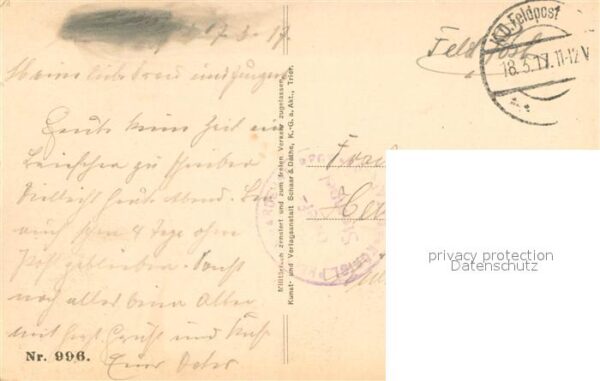 17.3.17
Meine liebe Frau und Jungen
Heute keine Zeit ein
Briefchen zu schreiben
Vielleicht heute Abend. Bin
auch schon 4 Tage ohne
Post geblieben. Sonst
noch alles beim Alten
mit herzl. Gruß und Kuß
Euer Vater
Nr. 996.
Militärisch zensiert und zum freien Versand zugelassen.
Kunst- und Verlagsanstalt Schaar & Dathe, K.-G. a. Akt., Trier.
Feldpost
K.D.Feldpost
18.3.17.11-12V
Frau
privacy protection
Datenschutz